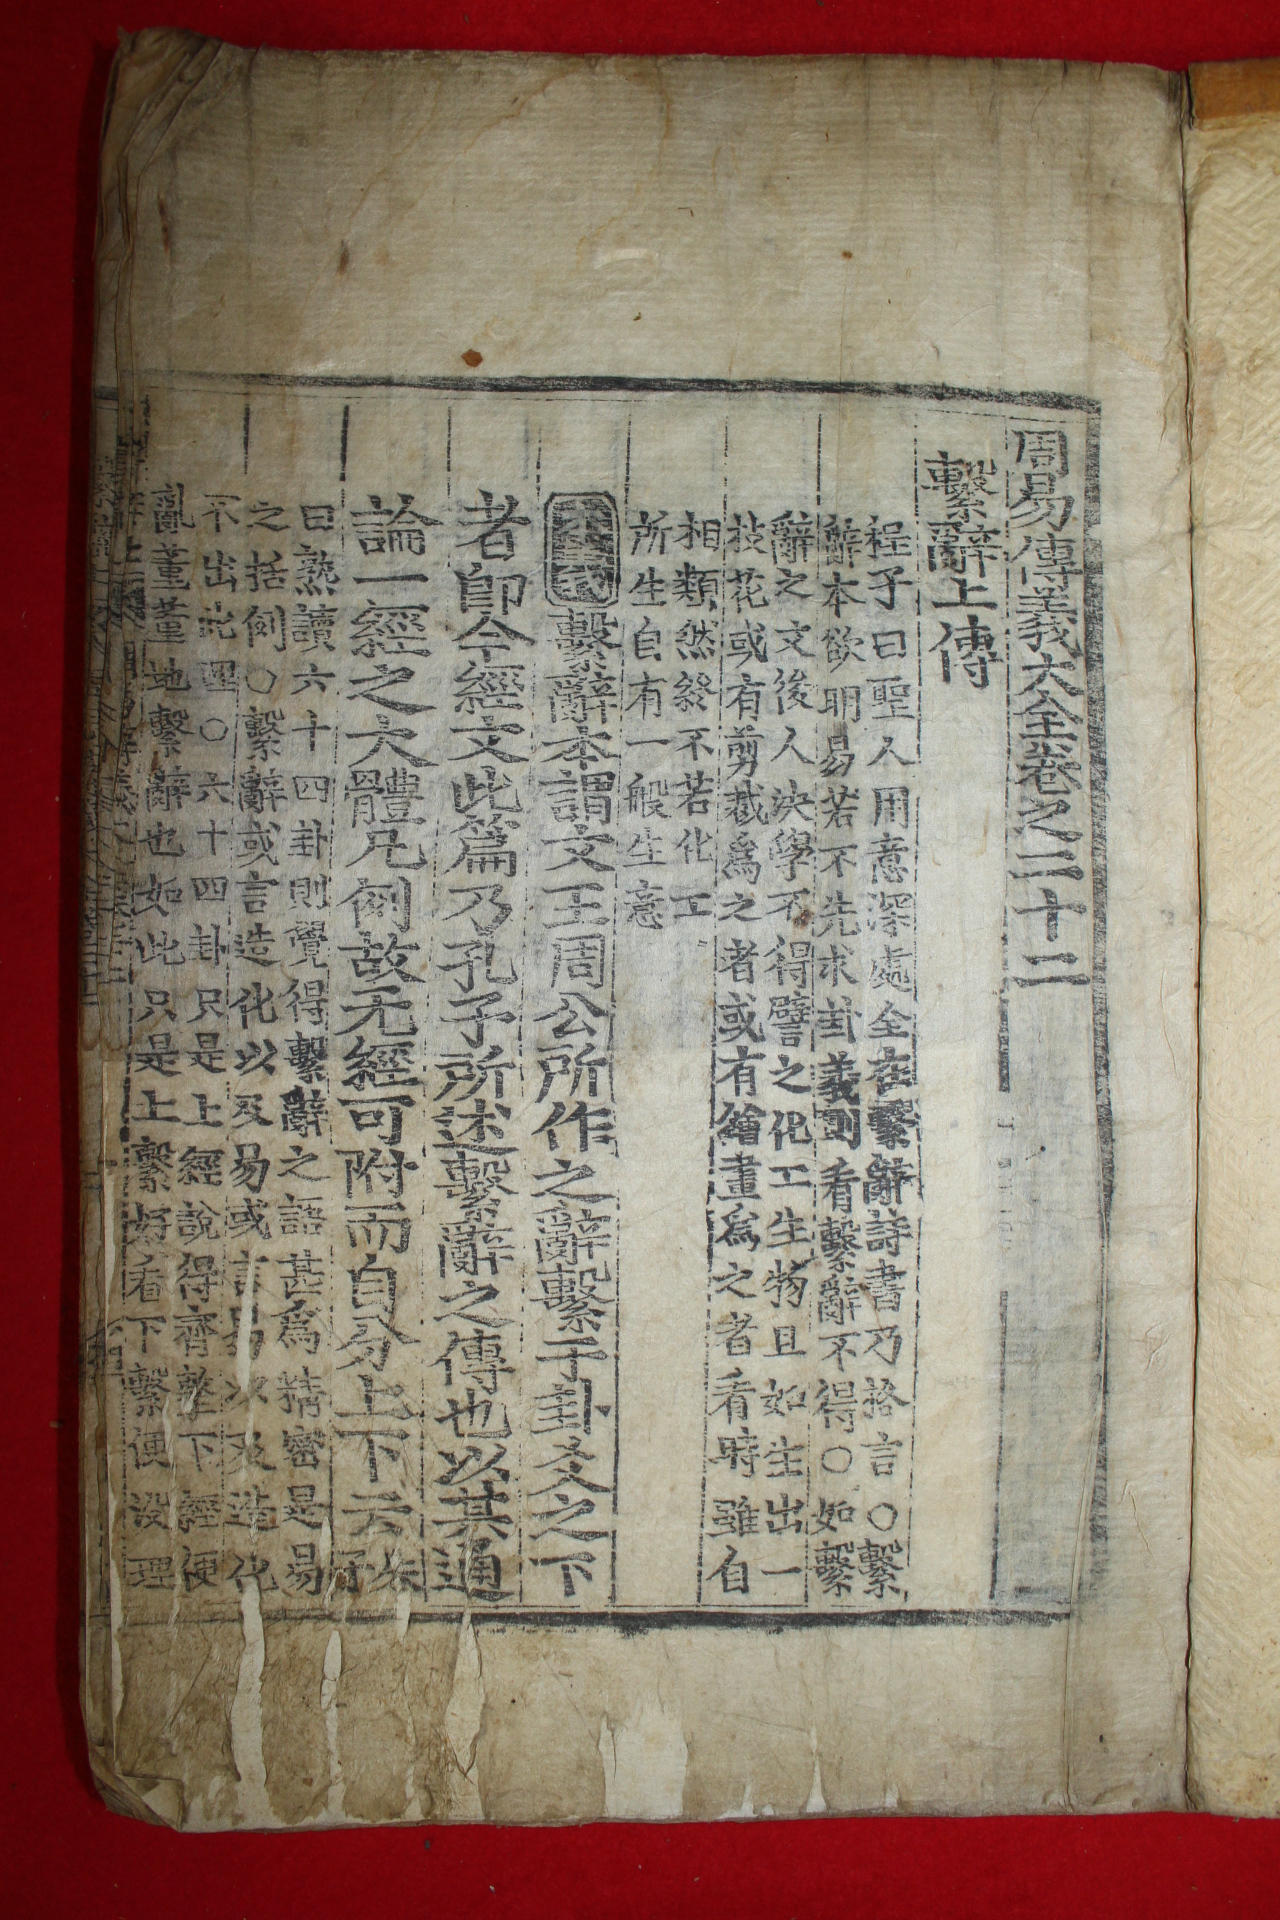 周易傳義大全卷之二十二
繫辭上傳
程子曰聖人用意深處全在繫辭詩書乃格言○繫
辭本欲明易若不先求卦義則看繫辭不得○如繫
辭之文後人決學不得譬之化工生物且如生出一
枝花或有剪裁爲之者或有繪畫爲之者看時雖自
相類然終不若化工
所生自有一般生意
本義繫辭本謂文王周公所作之辭繫于卦爻之下
者即今經文此篇乃孔子所述繫辭之傳也以其通
論一經之大體凡例故无經可附而自分上下云朱子
曰熟讀六十四卦則覺得繫辭之語甚爲精密是易
之括例○繫辭或言造化以及易或言易以及造化
不出此理○六十四卦只是上經說得齊整下經便
亂董董地繫辭也如此只是上繫好看下繫便没理